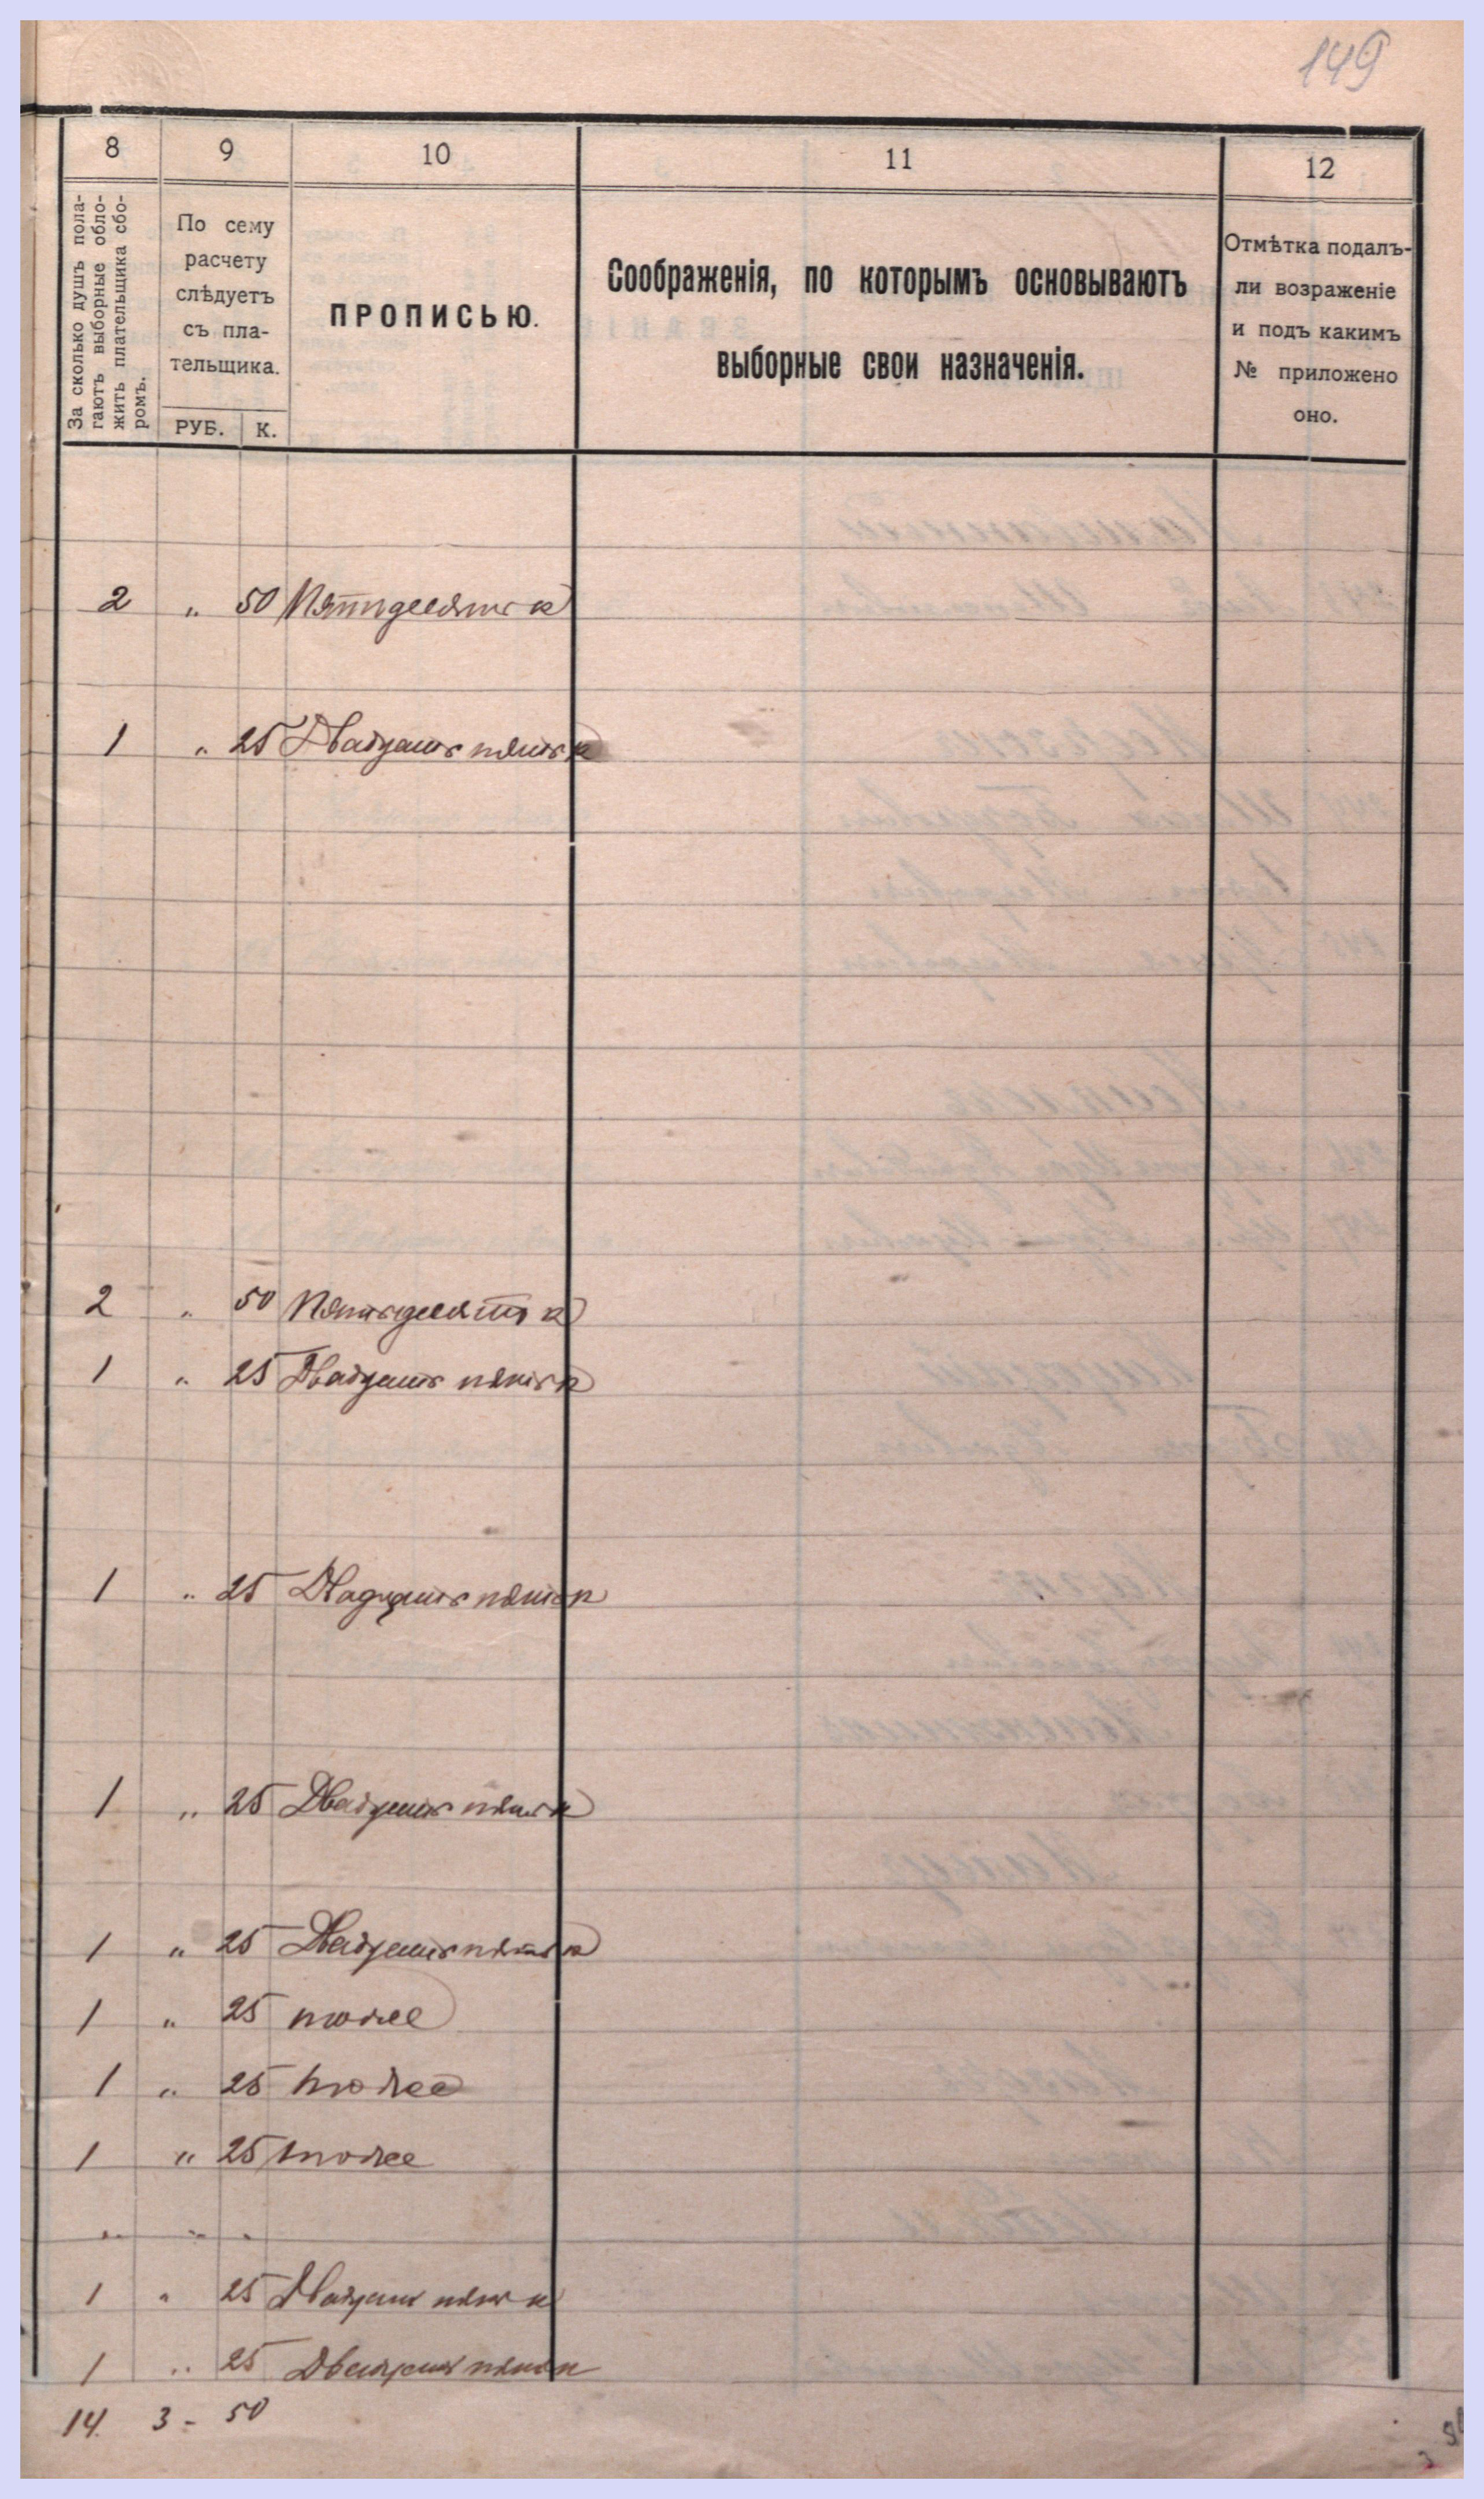 149
8 9 10 11 12
За сколько душъ пола-
гаютъ выборные обло-
жить плательщика сбо-
ромъ.
По сему
расчету
слѣдуетъ
съ пла-
тельщика.
РУБ. К.
ПРОПИСЬЮ.
Соображенія, по которымъ основываютъ
выборные свои назначенія.
Отмѣтка подалъ-
ли возраженіе
и подъ какимъ
№ приложено
оно.
2 „ 50 Пятидесять к
1 „ 25 Двадцать пять к
2 „ 50 Пятьдесятъ к
1 „ 25 Двадцать пять к
1 „ 25 Двадцать пять к
1 „ 25 Двадцать пять к
1 „ 25 Двадцать пять к
1 „ 25 тоже
1 „ 25 тоже
1 „ 25 тоже
„ „ „
1 „ 25 Двадцать пять к
1 „ 25 Двадцать пять к
14. 3 - 50